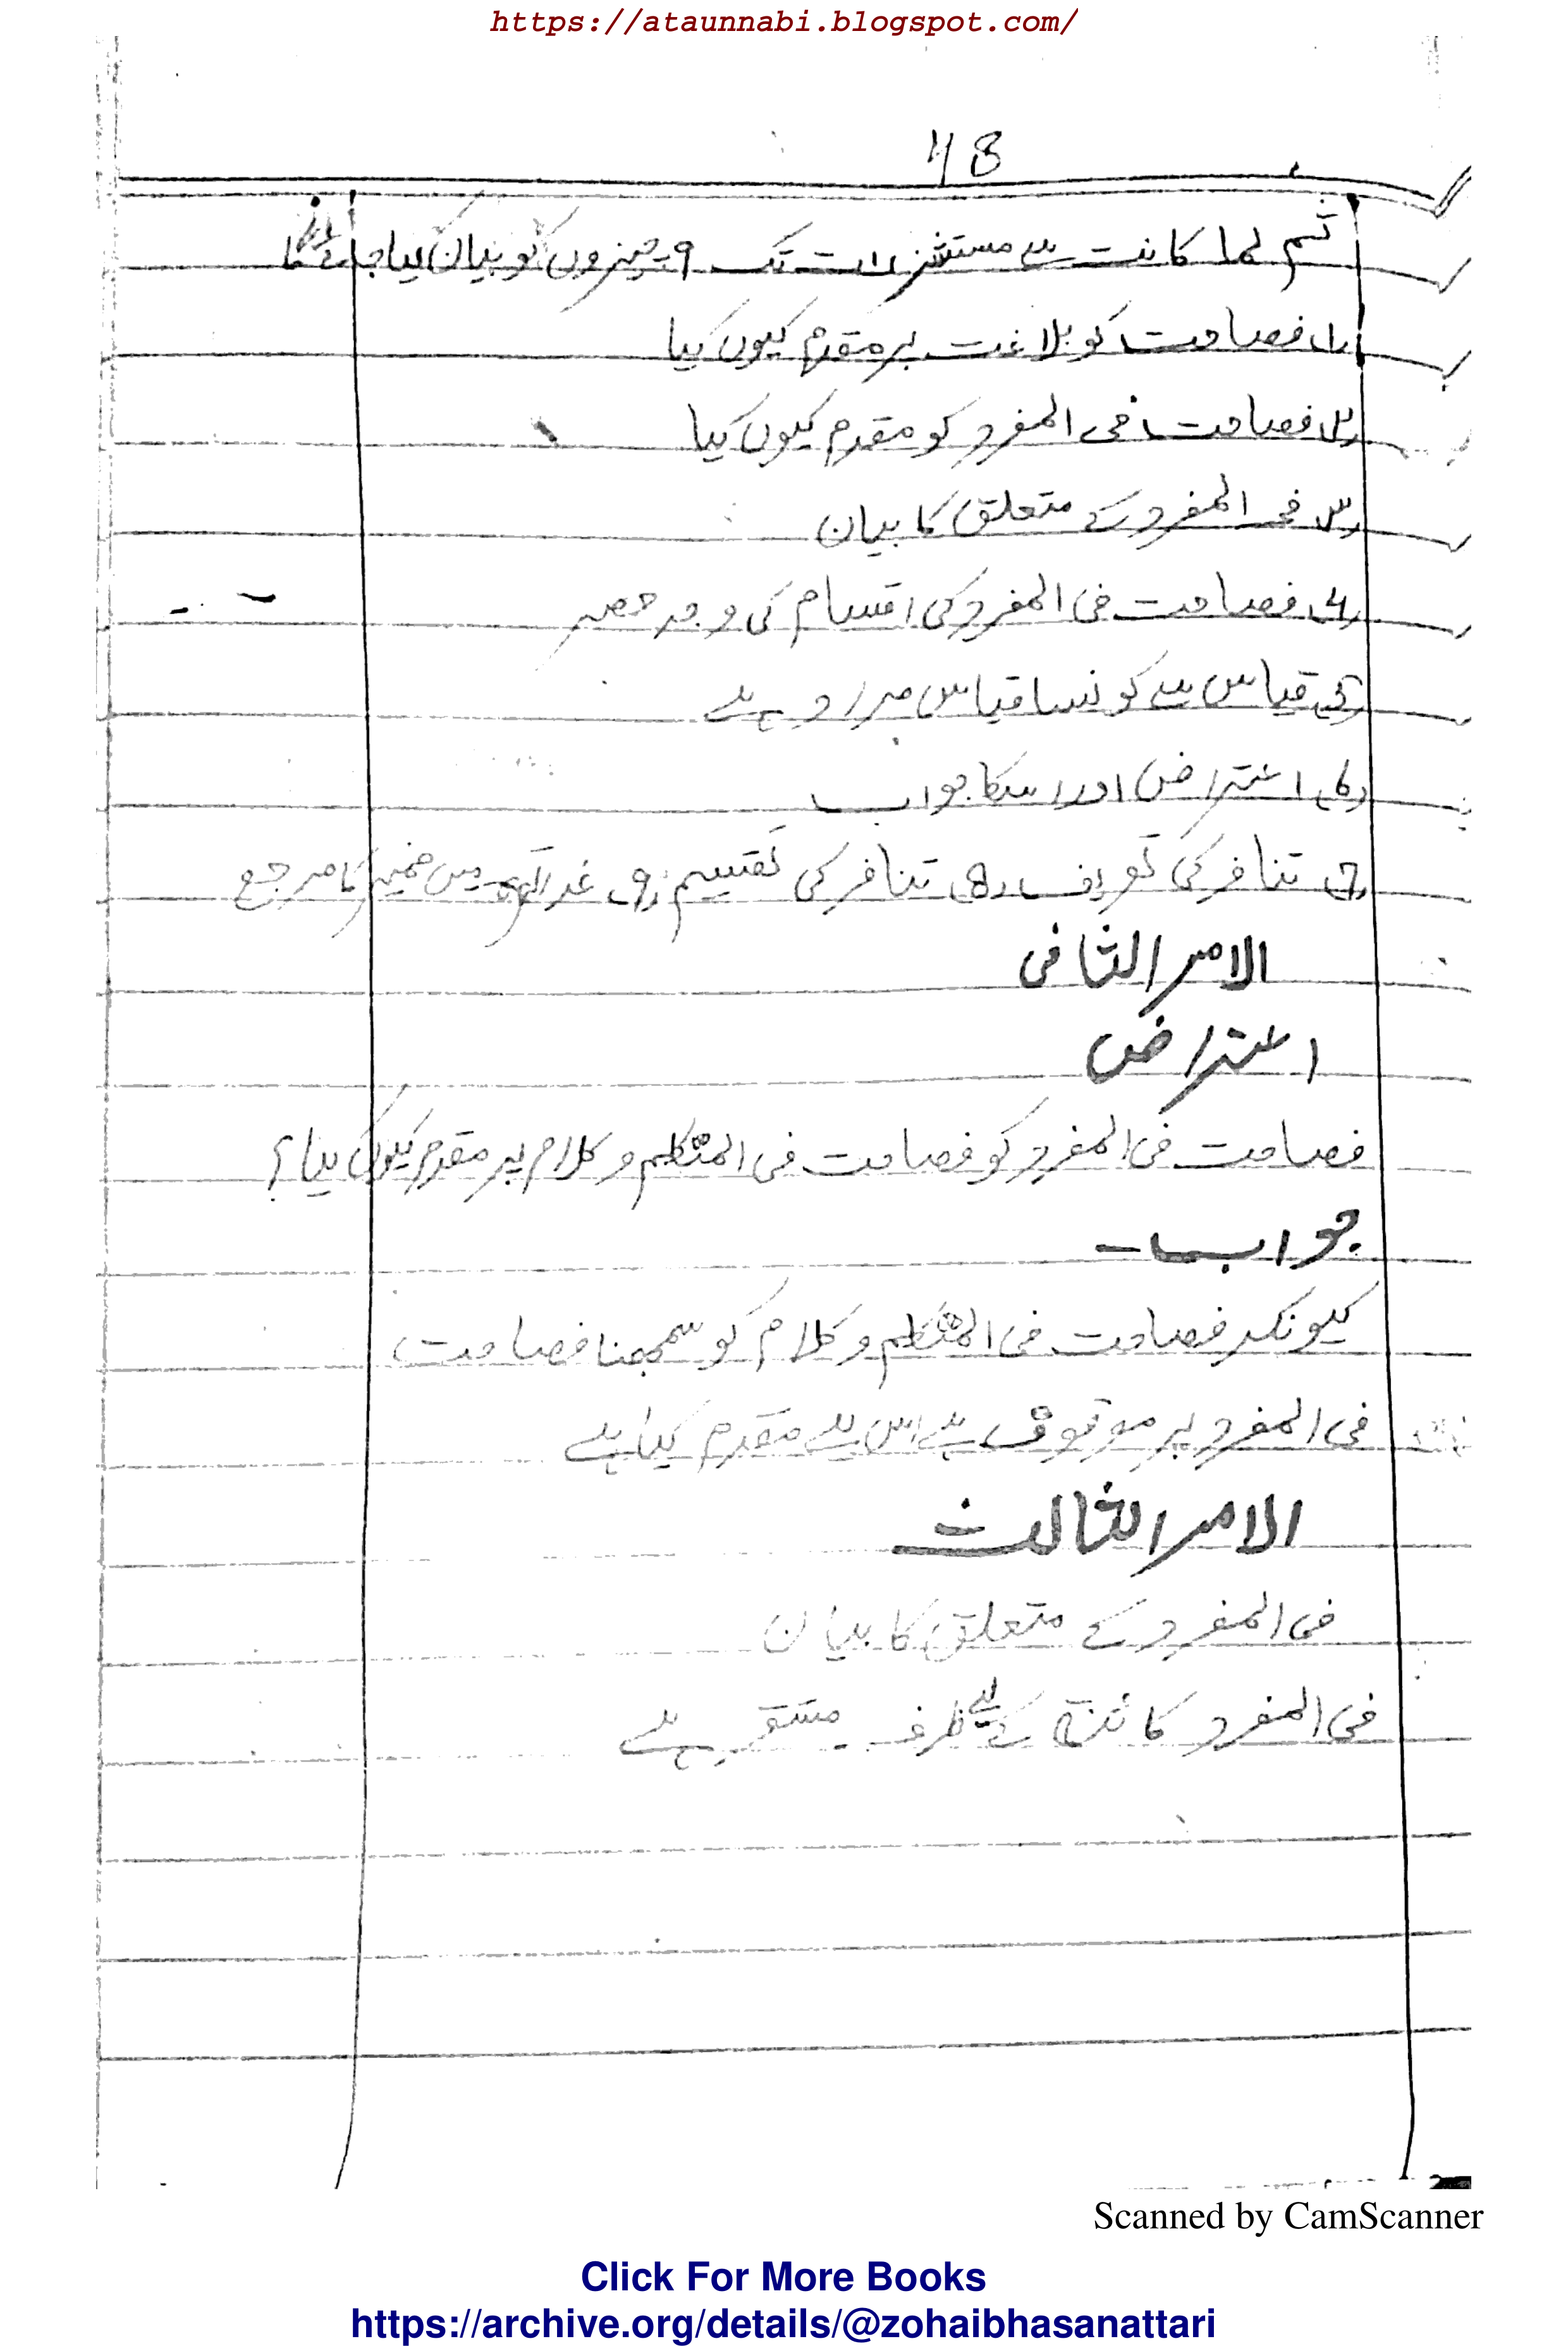 https://ataunnabi.blogspot.com/
48
ثم لما کانت سے مستشزرات تک ۹ چیزوں کو بیان کیا جائے گا
(۱) فصاحت کو بلاغت پر مقدم کیوں کیا
(۲) فصاحت فی المفرد کو مقدم کیوں کیا
(۳) فی المفرد کے متعلق کا بیان
(۴) فصاحت فی المفرد کی اقسام کی وجہ حصر
(5) قیاس سے کونسا قیاس مراد ہے
(۶) اعتراض اور اسکا جواب
(7) تنافر کی تعریف (8) تنافر کی تقسیم (9) غدائرہ میں ضمیر کا مرجع
الامر الثانی
اعتراض
فصاحت فی المفرد کو فصاحت فی المتکلم و کلام پر مقدم کیوں کیا؟
جواب
کیونکہ فصاحت فی المتکلم و کلام کو سمجھنا فصاحت
فی المفرد پر موقوف ہے اس لیے مقدم کیا ہے
الامر الثالث
فی المفرد کے متعلق کا بیان
فی المفرد کائنۃ کے لیے ظرف مستقر ہے
Scanned by CamScanner
Click For More Books
https://archive.org/details/@zohaibhasanattari